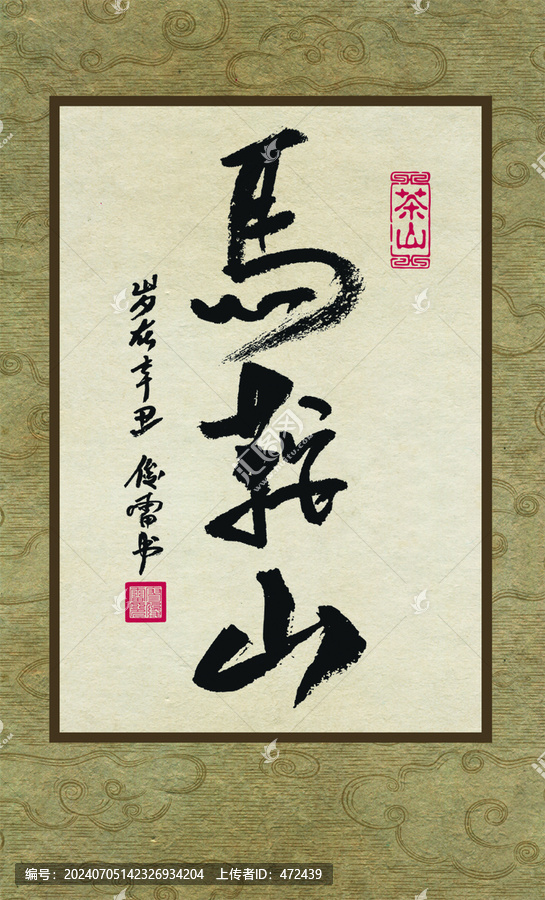 茶山
馬鞍山
岁在辛丑 俊雷书
编号：20240705142326934204 上传者ID：472439